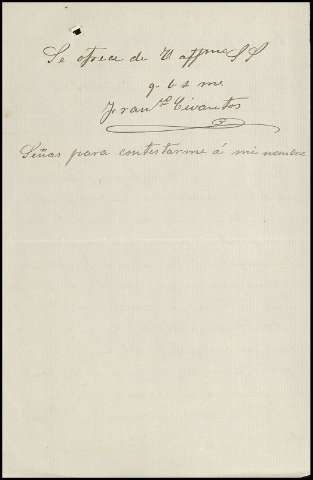 Se ofrece de V affmo S S
q b s m
Franco Civantos
Señas para contestarme á mi nombre